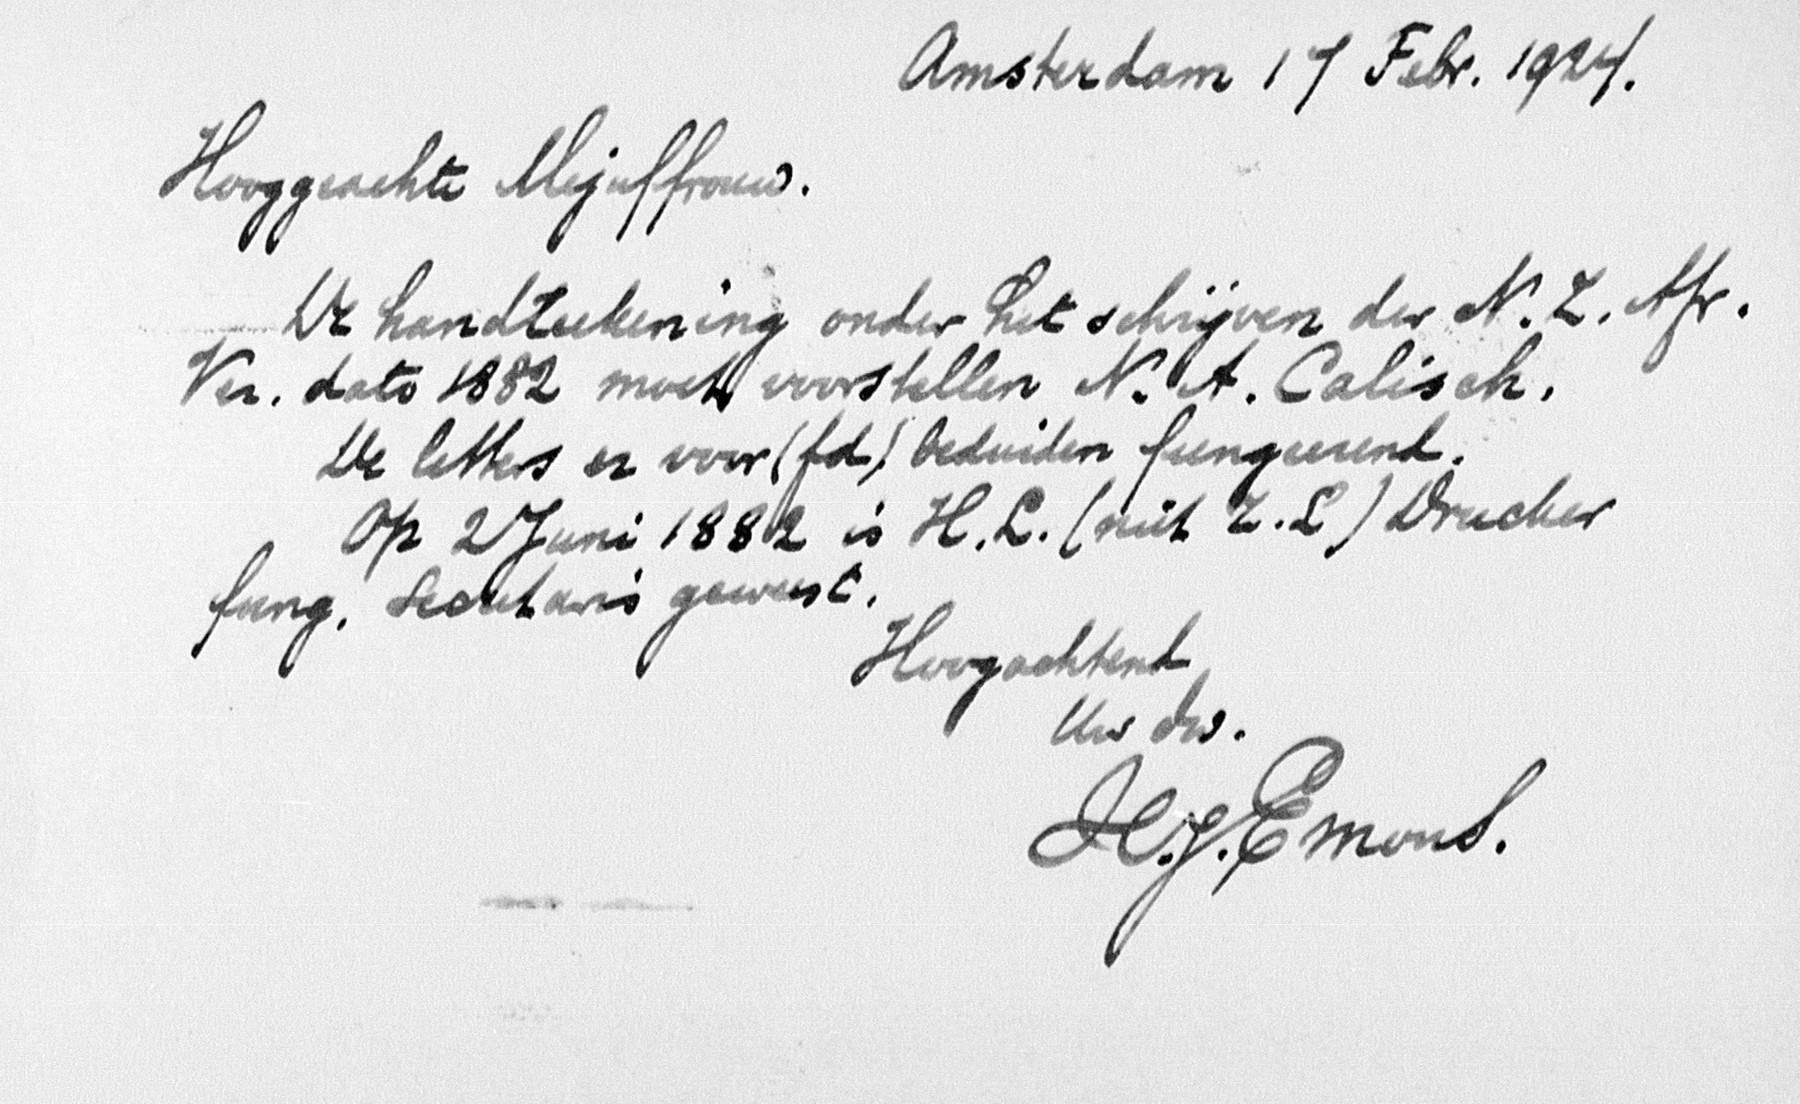 Amsterdam 17 Febr. 1924.
Hooggeachte Mejuffrouw.
De handteekening onder het schrijven der N. Z. Afr.
Ver. dato 1882 moet voorstellen N. A. Calisch.
De letters er voor (fd) beduiden fungeerend.
Op 2 Juni 1882 is H. L. (niet Z. L) Drucker
fung. Secretaris geweest.
Hoogachtend
Uw dw.
H. J. Emous.